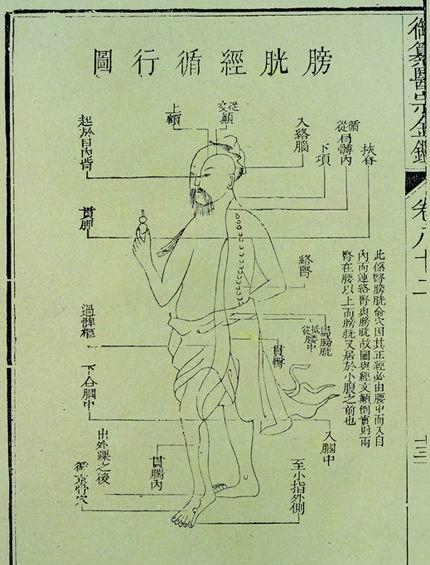 膀胱經循行圖
御纂醫宗金鑑
卷八十二
十三
從巔
交巔
上額
起於目內眥
入絡腦
下項
循肩髆內
挾脊
貫胂
絡腎
屬膀胱
貫臀
過髀樞
下合膕中
入膕中
出外踝之後
循京骨穴
貫腨內
至小指外側
此係腎膀胱俞穴因其正經必由腰中而入自
內而連絡腎與膀胱故圖與經文顛倒實則兩
腎在腰以上而膀胱又居於小腹之前也